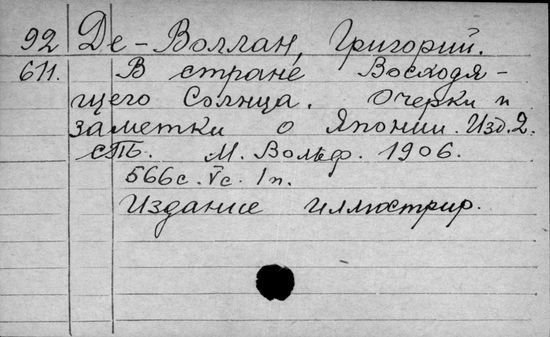 92 Де-Воллан, Григорий.
611. В стране Восходя-
щего Солнца. Очерки и
заметки о Японии. Изд. 2.
СПБ. М. Вольф. 1906.
566с. Vс. 1п.
Издание иллюстрир.